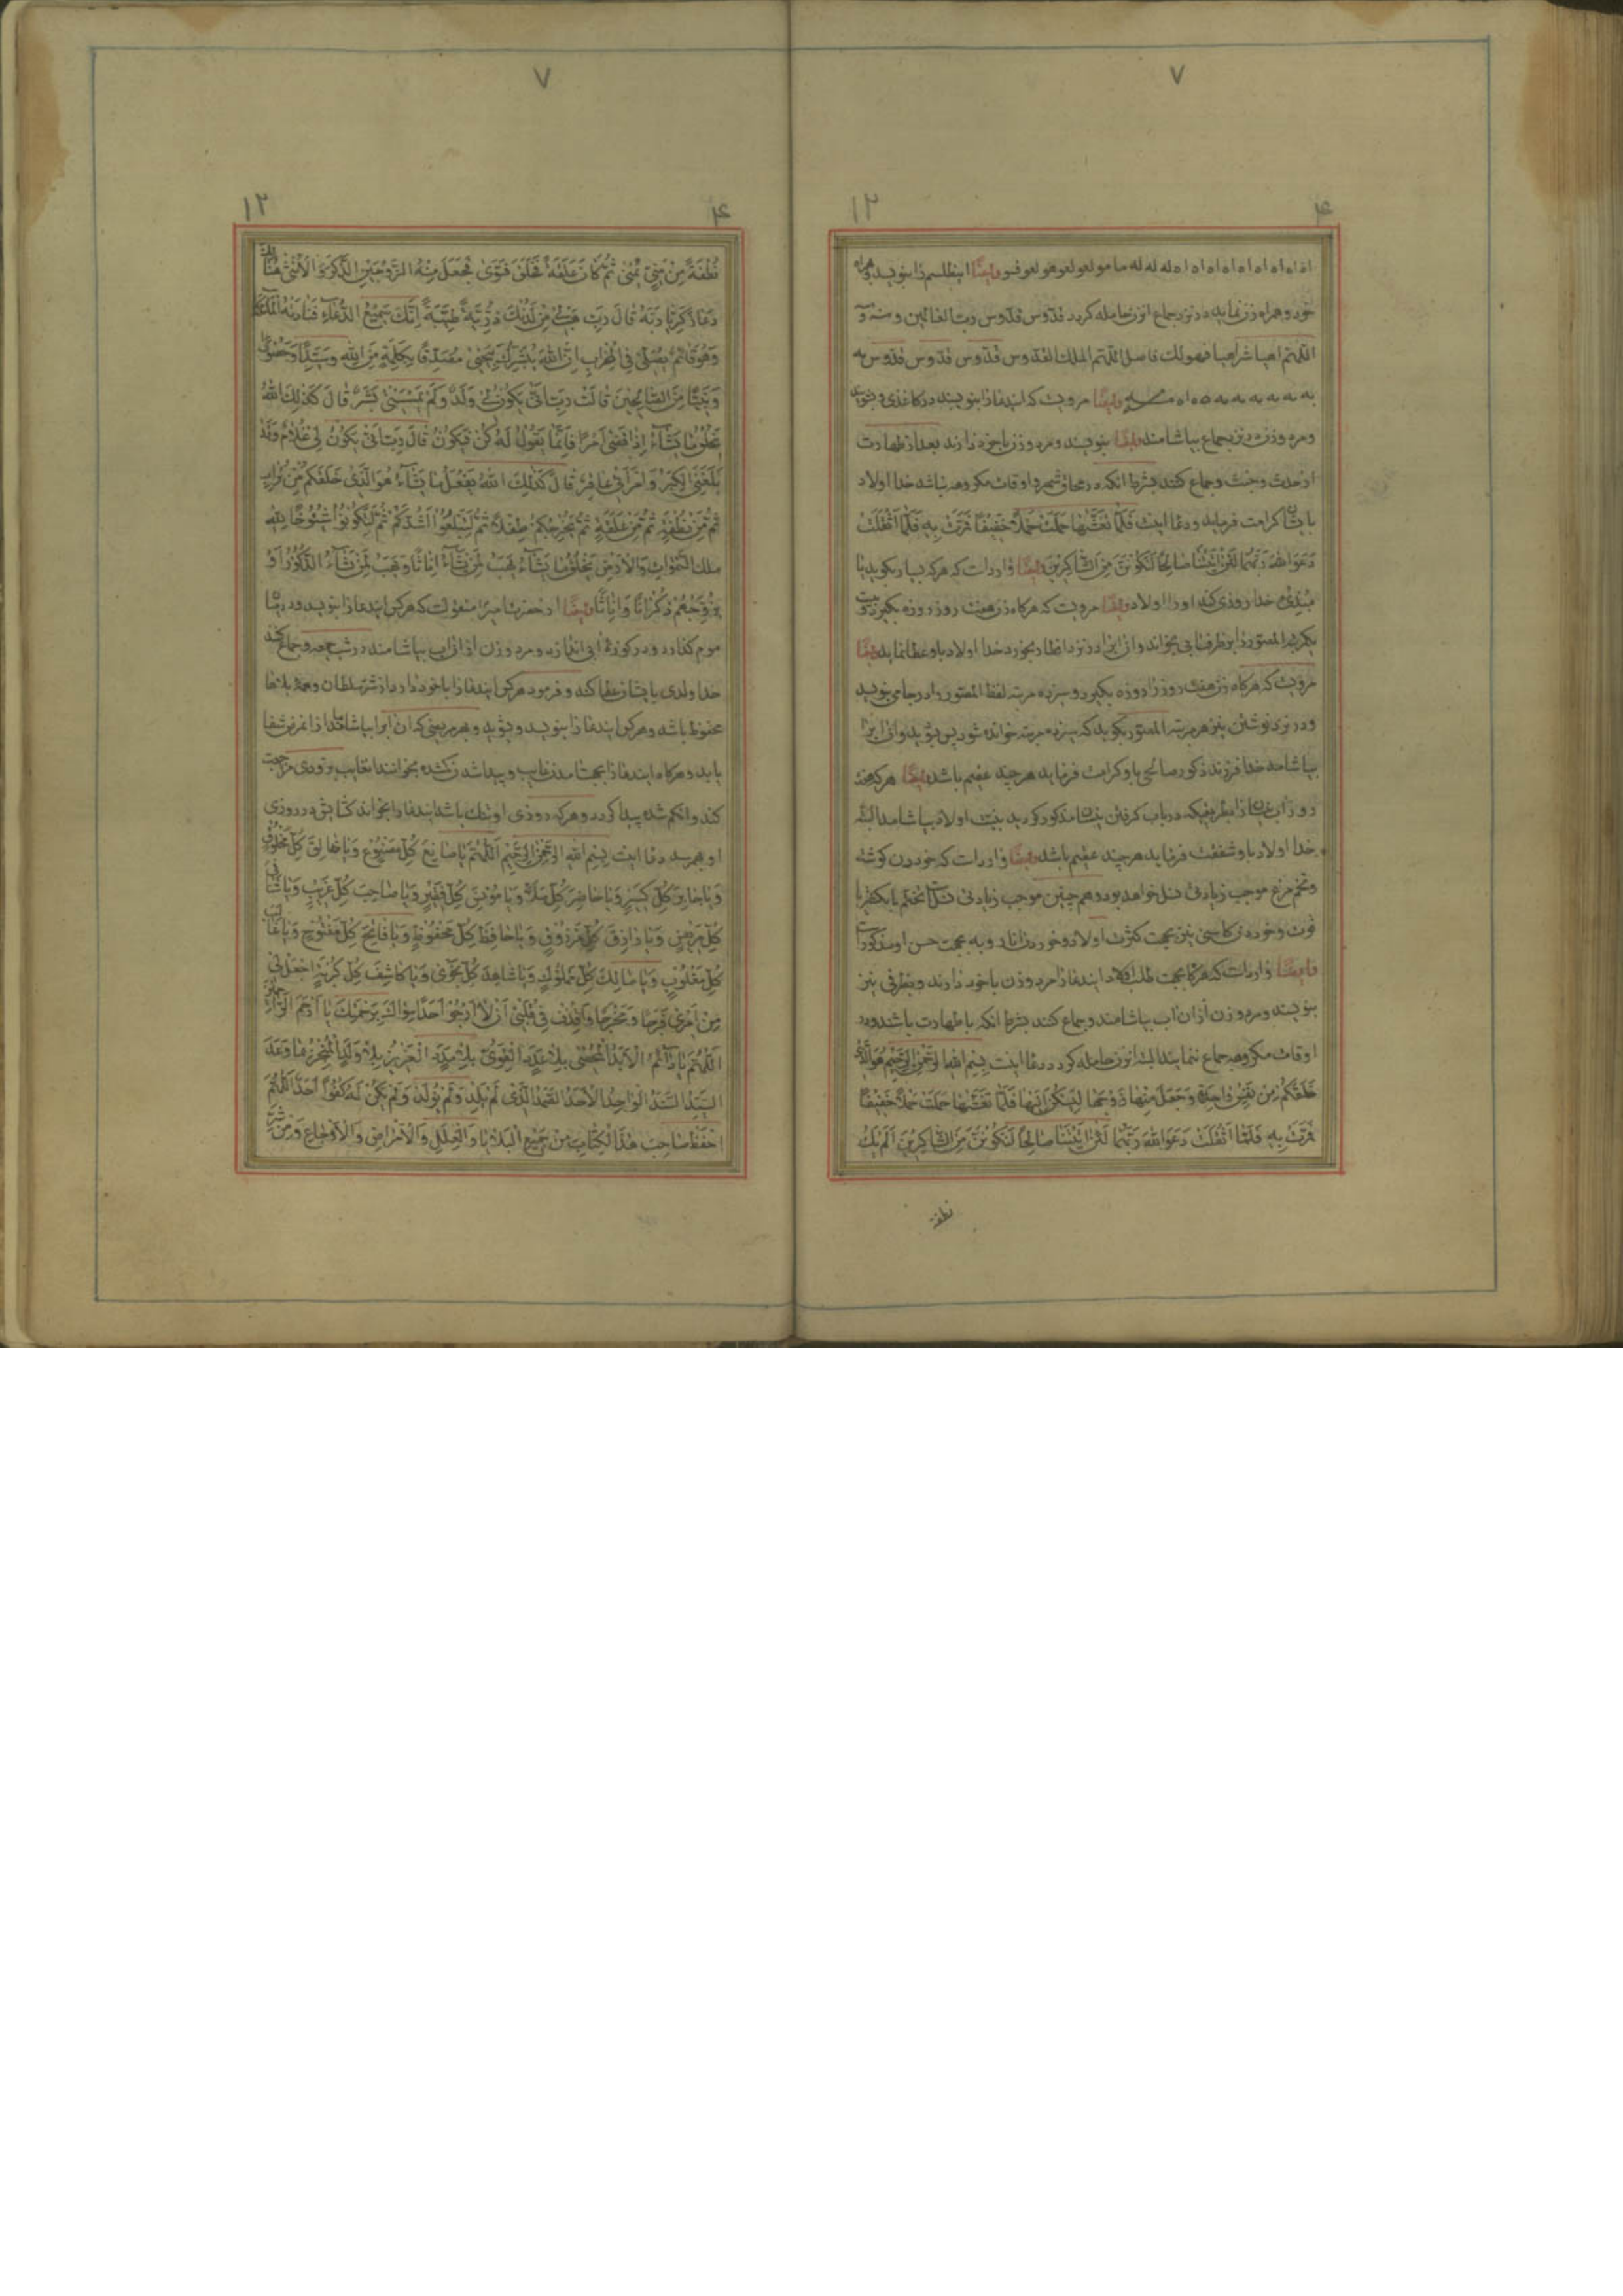 ۷
۴ ۱۲
اه اه اه اه اه اه اه له له له ما مو لعو لعو هو لعو فسو وایضًا این طلسم را بنویسد و همراه
خود و همراه زن نماید در نزد جماع آن زن حامله گردد قدّوس قدّوس ربّ العالمین
اللّهمّ اهیا شراهیا اللّهمّ الملك القدّوس قدّوس قدّوس قدّوس
وایضًا مرویست که ایندعا را بنویسند در کاغذی و بشویند
و مرد و زن در نزد جماع بیاشامند وایضًا بنویسند و مرد و زن با خود دارند بعد از طهارت
از حدث و خبث و جماع کنند بشرط انکه در محاق شهر و اوقات مکروهه نباشد خدا اولاد
بایشان کرامت فرماید و دعا اینست فَلَمّٰا تَغَشّٰیهٰا حَمَلَتْ حَمْلاً خَفِیفًا فَمَرَّتْ بِهِ فَلَمّٰا اَثْقَلَتْ
دَعَوَا اللّٰهَ رَبَّهُمٰا لَئِنْ اٰتَیْتَنٰا صٰالِحًا لَنَکُونَنَّ مِنَ الشّٰاکِرِینَ وایضًا وارداست که هرکه بسیار بکوید یا
مُبْدِئُ خدا روزی کند او را اولاد وایضًا مرویست که هرکاه زن هفت روز روزه بکیرد و بیست
یکمرتبه المصوّر را بر ظرف ابی بخواند و از ان اب در نزد افطار بخورد خدا اولاد باو عطا نماید وایضًا
مرویست که هرکاه زن هفت روز را روزه بکیرد و سیزده مرتبه لفظ المصوّر را در جامی بنویسد
و در نزد نوشتن نیز هر مرتبه المصوّر بکوید که سیزده مرتبه خوانده شود پس بشوید و ان اب را
بیاشامد خدا فرزند ذکور صالحی باو کرامت فرماید هر چند عقیم باشد وایضًا هرکه هفت
روز اب نیسان را بطریقیکه در باب کرفتن نیسان مذکور کردید بنیّت اولاد بیاشامد البتّه
خدا اولاد باو شفقت فرماید هر چند عقیم باشد وایضًا وارداست که خوردن کوشت
و تخم مرغ موجب زیادتی نسل خواهد بود و همچنین موجب زیادتی نسل است
و خوردن کاسنی نیز بجهت کثرت اولاد و خوردن انار و به بجهت حسن او مذکور است
وایضًا وارداست که هرکاه بجهت طلب اولاد ایندعا را مرد و زن با خود دارند و بظرفی نیز
بنویسند و مرد و زن از ان اب بیاشامند و جماع کنند بشرط انکه با طهارت باشند و در
اوقات مکروهه جماع ننمایند البتّه ان زن حامله کردد دعا اینست بِسْمِ اللّٰهِ الرَّحْمٰنِ الرَّحیٖمِ هُوَ الَّذیٖ
خَلَقَکُمْ مِنْ نَفْسٍ وٰاحِدَةٍ وَجَعَلَ مِنْهٰا زَوْجَهٰا لِیَسْکُنَ اِلَیْهٰا فَلَمّٰا تَغَشّٰیهٰا حَمَلَتْ حَمْلاً خَفِیفًا
فَمَرَّتْ بِهِ فَلَمّٰا اَثْقَلَتْ دَعَوَا اللّٰهَ رَبَّهُمٰا لَئِنْ اٰتَیْتَنٰا صٰالِحًا لَنَکُونَنَّ مِنَ الشّٰاکِرِینَ اَلَمْ یَكُ
نطفة
۷
۴ ۱۲
نُطْفَةً مِنْ مَنِیٍّ یُمْنیٰ ثُمَّ کٰانَ عَلَقَةً فَخَلَقَ فَسَوّیٰ فَجَعَلَ مِنْهُ الزَّوْجَیْنِ الذَّکَرَ وَ الْاُنْثیٰ هُنٰالِكَ
دَعٰا زَکَرِیّٰا رَبَّهُ قٰالَ رَبِّ هَبْ لیٖ مِنْ لَدُنْكَ ذُرِّیَّةً طَیِّبَةً اِنَّكَ سَمیٖعُ الدُّعٰاءِ فَنٰادَتْهُ الْمَلٰائِکَةُ
وَهُوَ قٰائِمٌ یُصَلّیٖ فِی الْمِحْرٰابِ اِنَّ اللّٰهَ یُبَشِّرُكَ بِیَحْییٰ مُصَدِّقًا بِکَلِمَةٍ مِنَ اللّٰهِ وَسَیِّدًا وَحَصُورًا
وَنَبِیًّا مِنَ الصّٰالِحیٖنَ قٰالَتْ رَبِّ اَنّیٰ یَکُونُ لیٖ وَلَدٌ وَلَمْ یَمْسَسْنیٖ بَشَرٌ قٰالَ کَذٰلِكِ اللّٰهُ
یَخْلُقُ مٰا یَشٰآءُ اِذٰا قَضیٰ اَمْرًا فَاِنَّمٰا یَقُولُ لَهُ کُنْ فَیَکُونُ قٰالَ رَبِّ اَنّیٰ یَکُونُ لیٖ غُلٰامٌ وَقَدْ
بَلَغَنِیَ الْکِبَرُ وَ امْرَأَتیٖ عٰاقِرٌ قٰالَ کَذٰلِكَ اللّٰهُ یَفْعَلُ مٰا یَشٰآءُ هُوَ الَّذیٖ خَلَقَکُمْ مِنْ تُرٰابٍ
ثُمَّ مِنْ نُطْفَةٍ ثُمَّ مِنْ عَلَقَةٍ ثُمَّ یُخْرِجُکُمْ طِفْلاً ثُمَّ لِتَبْلُغُوا اَشُدَّکُمْ ثُمَّ لِتَکُونُوا شُیُوخًا لِلّٰهِ
مُلْكُ السَّمٰوٰاتِ وَالْاَرْضِ یَخْلُقُ مٰا یَشٰآءُ یَهَبُ لِمَنْ یَشٰآءُ اِنٰاثًا وَیَهَبُ لِمَنْ یَشٰآءُ الذُّکُورَ اَوْ
یُزَوِّجُهُمْ ذُکْرٰانًا وَ اِنٰاثًا وایضًا از حضرت امیر منقولست که هرکس ایندعا را بنویسد و در میان
موم کذارد و در کوزهٔ ابی اندازد و مرد و زن از ان اب بیاشامند در شب جمعه و جماع کنند
خدا ولدی بایشان عطا کند و فرمود هرکس ایندعا را با خود دارد از شرّ سلطان و همهٔ بلاها
محفوظ باشد و هرکس ایندعا را بنویسد و بشوید و بهر مریضی که ان اب را بیاشاماند از ان مرض شفا
یابد و هرکاه ایندعا را بجهت امدن غایب و پیدا شدن کمشده بخوانند ان غایب بزودی مراجعت
کند و انکم شده پیدا کردد و هرکه روزی او تنك باشد ایندعا را بخواند کشایش در روزی
او بهم رسد دعا اینست بِسْمِ اللّٰهِ الرَّحْمٰنِ الرَّحیٖمِ اَللّٰهُمَّ یٰا صٰانِعَ کُلِّ مَصْنُوعٍ وَیٰا خٰالِقَ کُلِّ مَخْلُوقٍ
وَیٰا جٰابِرَ کُلِّ کَسیٖرٍ وَیٰا حٰاضِرَ کُلِّ مَلَاءٍ وَیٰا مُونِسَ کُلِّ فَقیٖرٍ وَیٰا صٰاحِبَ کُلِّ غَریٖبٍ وَیٰا شٰافِیَ
کُلِّ مَریٖضٍ وَیٰا رٰازِقَ کُلِّ مَرْزُوقٍ وَیٰا حٰافِظَ کُلِّ مَحْفُوظٍ وَیٰا فٰاتِحَ کُلِّ مَفْتُوحٍ وَیٰا غٰالِبَ
کُلِّ مَغْلُوبٍ وَیٰا مٰالِكَ کُلِّ مَمْلُوكٍ وَیٰا شٰاهِدَ کُلِّ نَجْویٰ وَیٰا کٰاشِفَ کُلِّ کُرْبَةٍ اجْعَلْ لیٖ
مِنْ اَمْریٖ فَرَجًا وَ مَخْرَجًا وَاقْذِفْ فیٖ قَلْبیٖ اَنْ لٰا اَرْجُوَ اَحَدًا سِوٰاكَ بِرَحْمَتِكَ یٰا اَرْحَمَ الرّٰاحِمیٖنَ
اَللّٰهُمَّ یٰا دٰآئِمُ الْاَبَدِ الْمُحْصیٖ بِلٰا عَدَدٍ الْقَوِیُّ بِلٰا مَدَدٍ الْعَزیٖزُ بِلٰا وَلَدٍ الْمُنْجِزُ مٰا وَعَدَ
السَّیِّدُ السَّنَدُ الْوٰاحِدُ الْاَحَدُ الصَّمَدُ الَّذیٖ لَمْ یَلِدْ وَلَمْ یُولَدْ وَلَمْ یَکُنْ لَهُ کُفُوًا اَحَدٌ اَللّٰهُمَّ
احْفَظْ صٰاحِبَ هٰذَا الْکِتٰابِ مِنْ جَمیٖعِ الْبَلٰایٰا وَالْعِلَلِ وَالْاَمْرٰاضِ وَالْاَوْجٰاعِ وَمِنْ شَرِّ